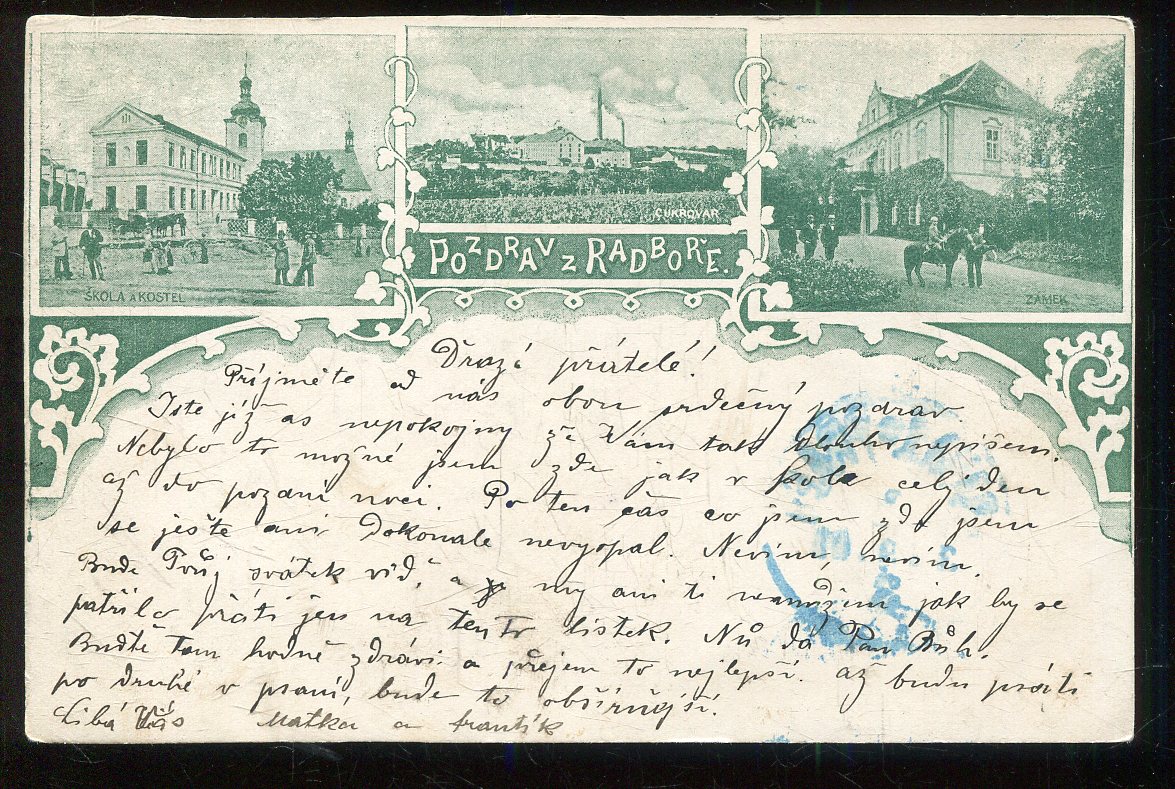 ŠKOLA A KOSTEL
CUKROVAR
ZÁMEK
POZDRAV Z RADBOŘE.
Drazí přátelé!
Příjměte od nás obou srdečný pozdrav
Jste již as nepokojny že Vám tak dlouho nepíšem.
Nebylo to možné jsem zde jak v škole celý den
až do pozdní noci. Po ten čas co jsem zde jsem
se ješte ani dokonale nevyspal. Nevím, nevím,
Bude Tvůj svátek viď, a my ani ti nemůžem jak by se
patřilo přáti jen na tento lístek. Nů dá Pan Bůh.
Buďtě tam hodně zdrávi a přejem to nejlepší. až budu psáti
po druhé v psaní, bude to obšírnější.
Líbá Vás Matka a Frantík